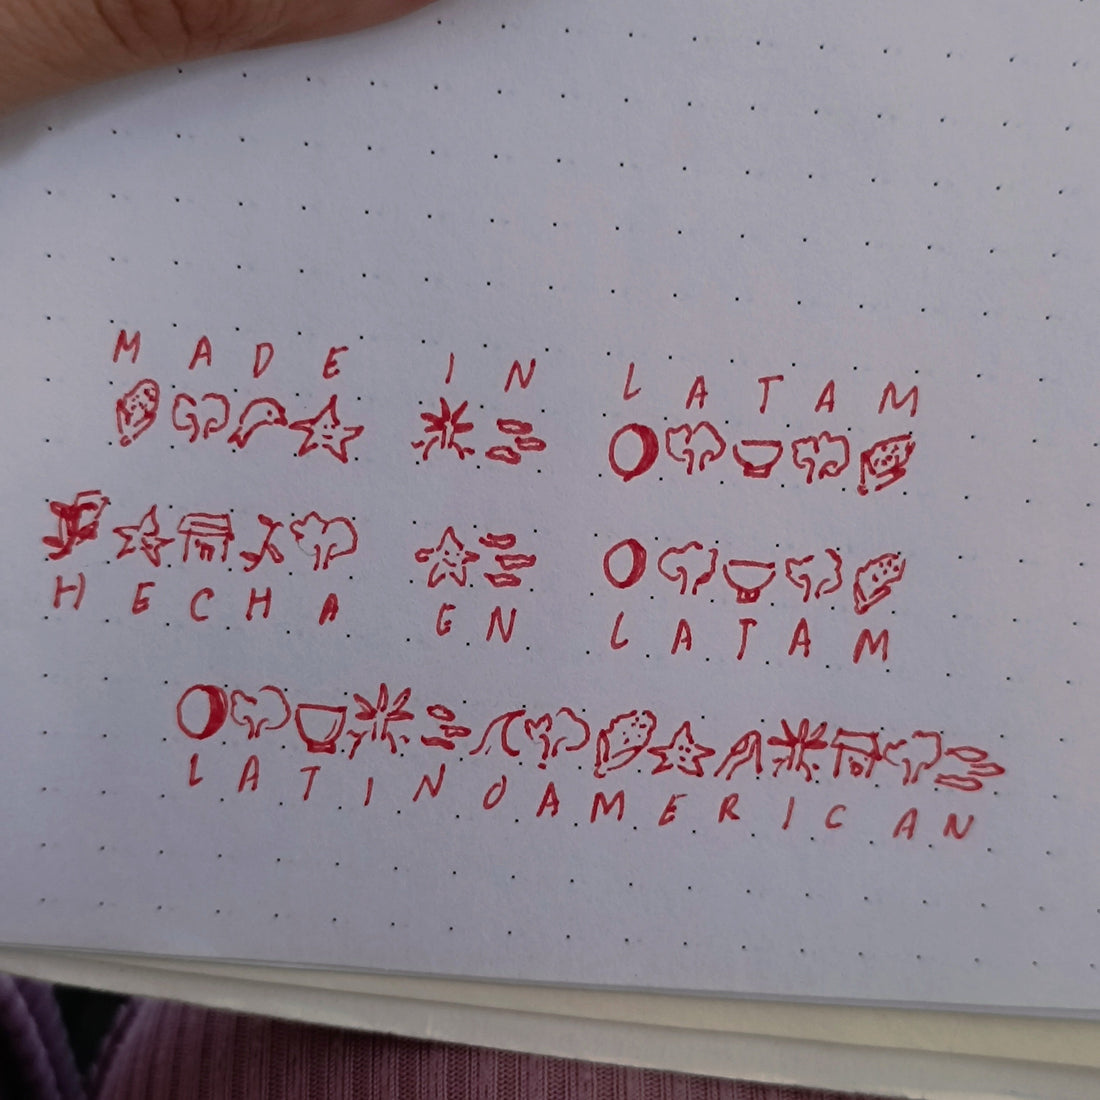 MADE IN LATAM
HECHA EN LATAM
LATINOAMERICAN